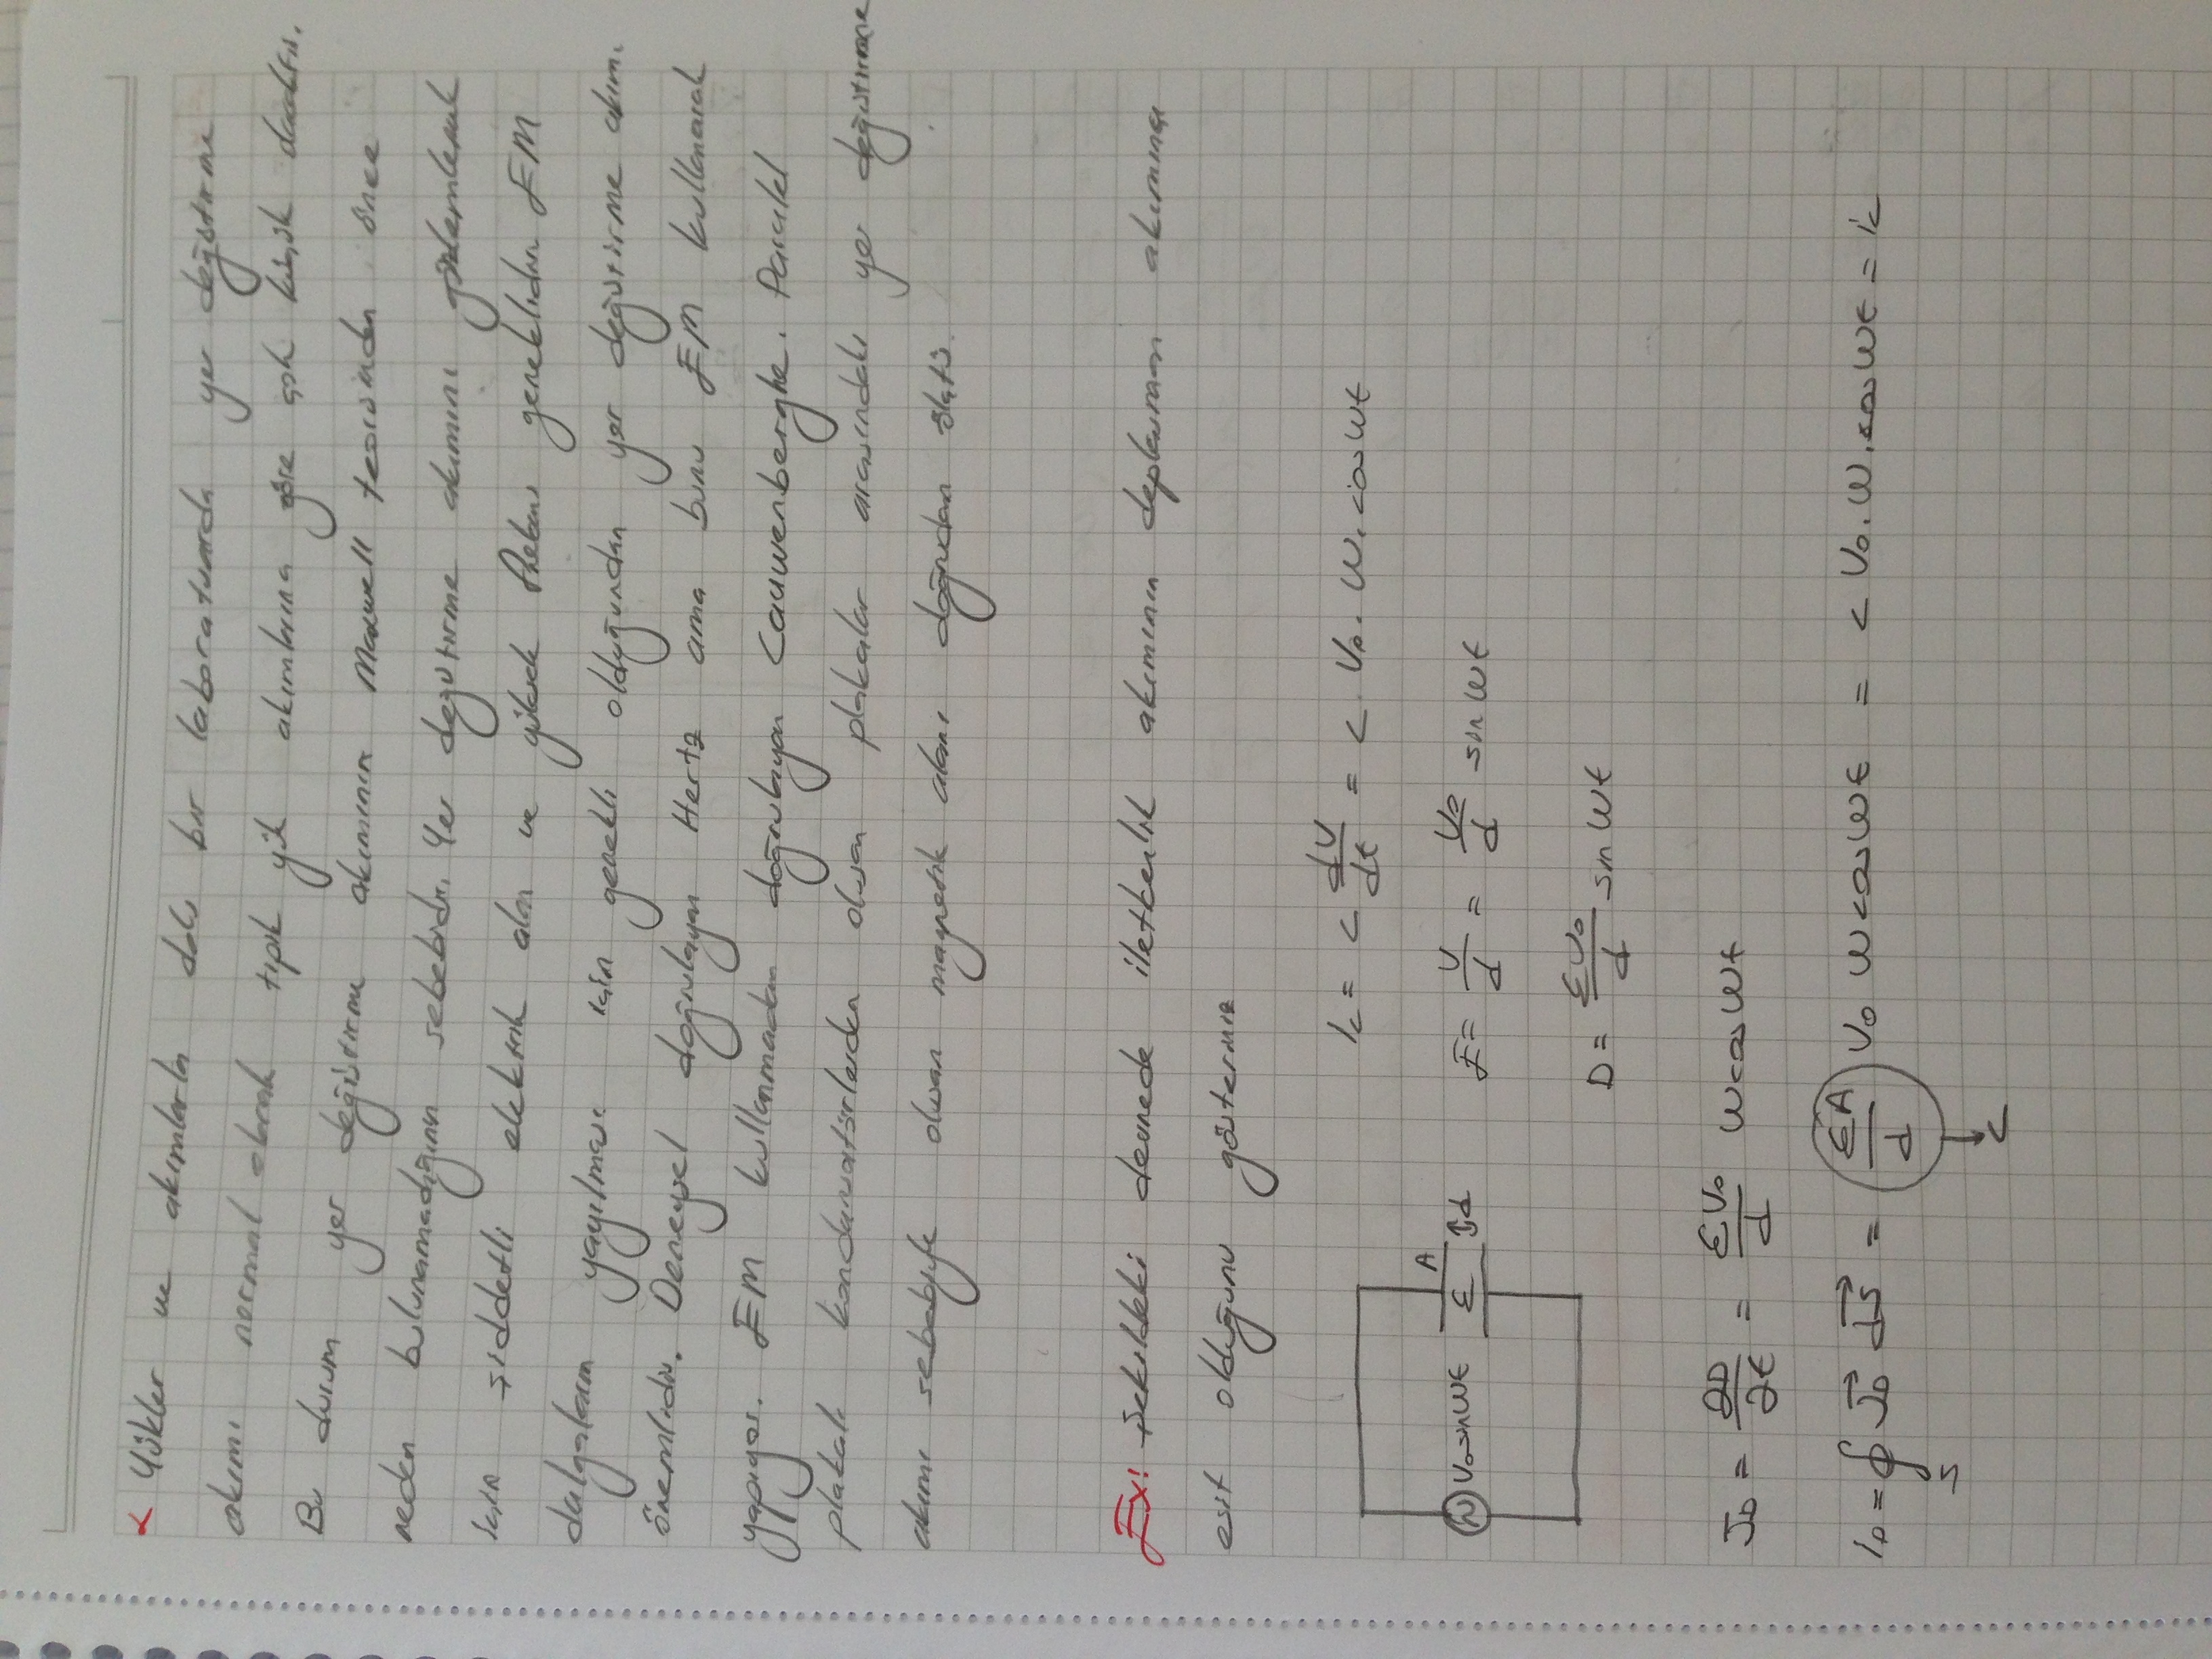 α Yükler ve akımlarla dolu bir laboratuarda yer değiştirme
akımı normal olarak tipik yük akımlarına göre çok küçük olacaktır.
Bu durum yer değiştirme akımının Maxwell teorisinden önce
neden bulunamadığının sebebidir. Yer değiştirme akımını gözlemlemek
için şiddetli elektrik alan ve yüksek frekans gereklidir. EM
dalgaların yayılması için gerekli olduğundan yer değiştirme akımı
önemlidir. Deneysel doğrulayan Hertz ama bunu EM kullanarak
yapıyor. EM kullanmadan doğrulayan Cauwenberghe. Paralel
plakalı kondansatörlerden oluşan plakalar arasındaki yer değiştirme
akımı sebebiyle oluşan magnetik alanı doğrudan ölçtü.
Ex! Şekildeki devrede iletkenlik akımının deplasman akımına
esit olduğunu gösteriniz
ic = C dV/dt = C. V₀. W. cosWt
A
V₀sinWt ε ↕d
E = V/d = V₀/d sinWt
D = εV₀/d sinWt
J_D = ∂D/∂t = εV₀/d WcosWt
i_D = ∮_S J_D⃗ dS⃗ = (εA/d) V₀ WcosWt = C V₀. W. cosWt = ic
↓
C